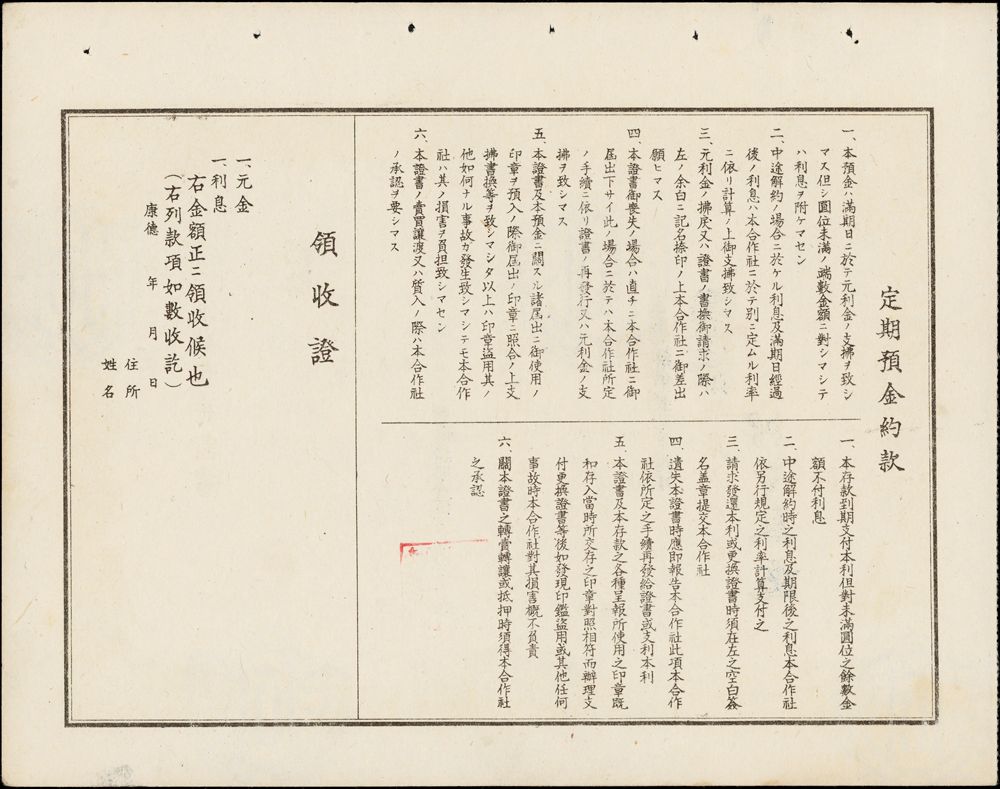 定期預金約款
一、本預金ハ滿期日ニ於テ元利金ノ支拂ヲ致シ
マス但シ圓位未滿ノ端數金額ニ對シマシテ
ハ利息ヲ附ケマセン
二、中途解約ノ場合ニ於ケル利息及滿期日經過
後ノ利息ハ本合作社ニ於テ別ニ定ムル利率
ニ依リ計算ノ上御支拂致シマス
三、元利金ノ拂戾又ハ證書ノ書換御請求ノ際ハ
左ノ余白ニ記名捺印ノ上本合作社ニ御差出
願ヒマス
四、本證書御喪失ノ場合ハ直チニ本合作社ニ御
屆出下サイ此ノ場合ニ於テハ本合作社所定
ノ手續ニ依リ證書ノ再發行又ハ元利金ノ支
拂ヲ致シマス
五、本證書及本預金ニ關スル諸屆出ニ御使用ノ
印章ヲ預入ノ際御屆出ノ印章ニ照合ノ上支
拂書換等ヲ致シマシタ以上ハ印章盜用其ノ
他如何ナル事故ガ發生致シマシテモ本合作
社ハ其ノ損害ヲ負担致シマセン
六、本證書ノ賣買讓渡又ハ質入ノ際ハ本合作社
ノ承認ヲ要シマス
一、本存款到期支付本利但對未滿圓位之餘數金
額不付利息
二、中途解約時之利息及期限後之利息本合作社
依另行規定之利率計算支付之
三、請求發還本利或更換證書時須在左之空白簽
名盖章提交本合作社
四、遺失本證書時應即報告本合作社此項本合作
社依所定之手續再發給證書或支利本利
五、本證書及本存款之各種呈報所使用之印章既
和存入當時所交存之印章對照相符而辦理支
付更換證書等後如發現印鑑盜用或其他任何
事故時本合作社對其損害概不負責
六、關本證書之轉賣轉讓或抵押時須得本合作社
之承認
領收證
一、元金
一、利息
右金額正ニ領收候也
(右列款項如數收訖)
康德 年 月 日
住所
姓名